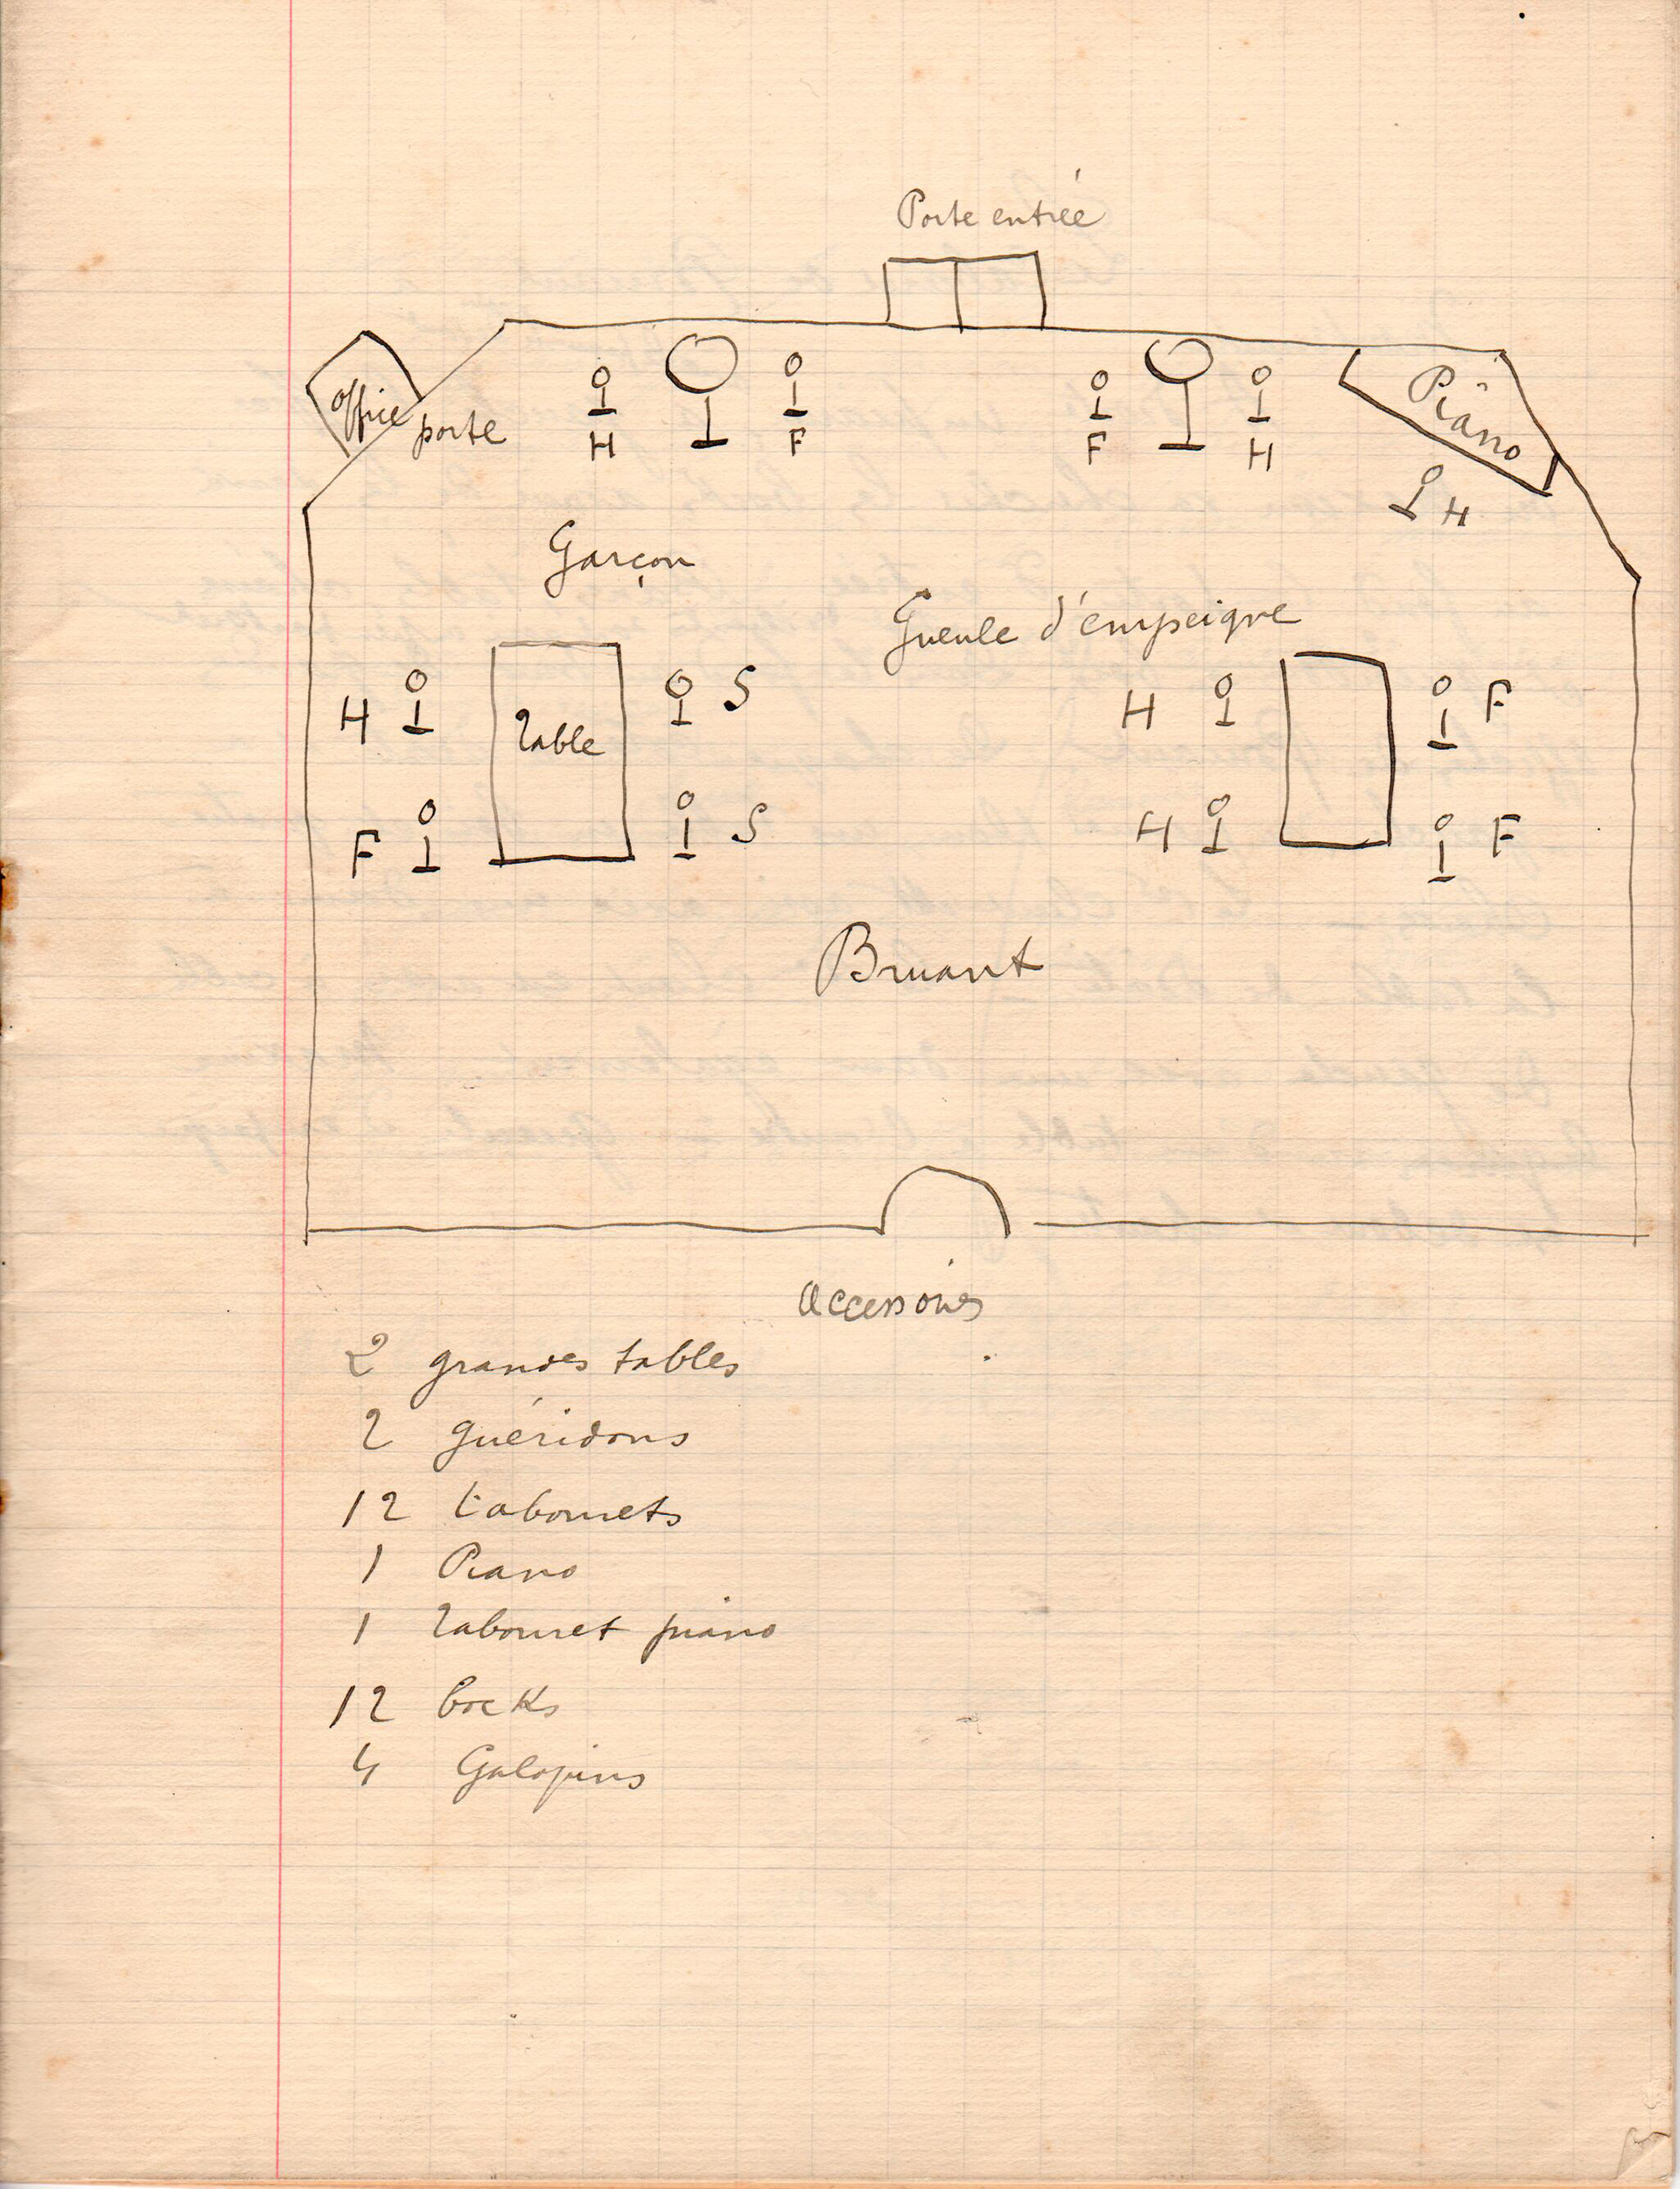 Porte entrée
Office porte
Piano
H F F H
H
Garçon
Gueule d'empeigne
H Table S H F
F S H F
Bruant
Accessoires
2 grandes tables
2 guéridons
12 tabourets
1 Piano
1 Tabouret piano
12 bocks
4 Galopins